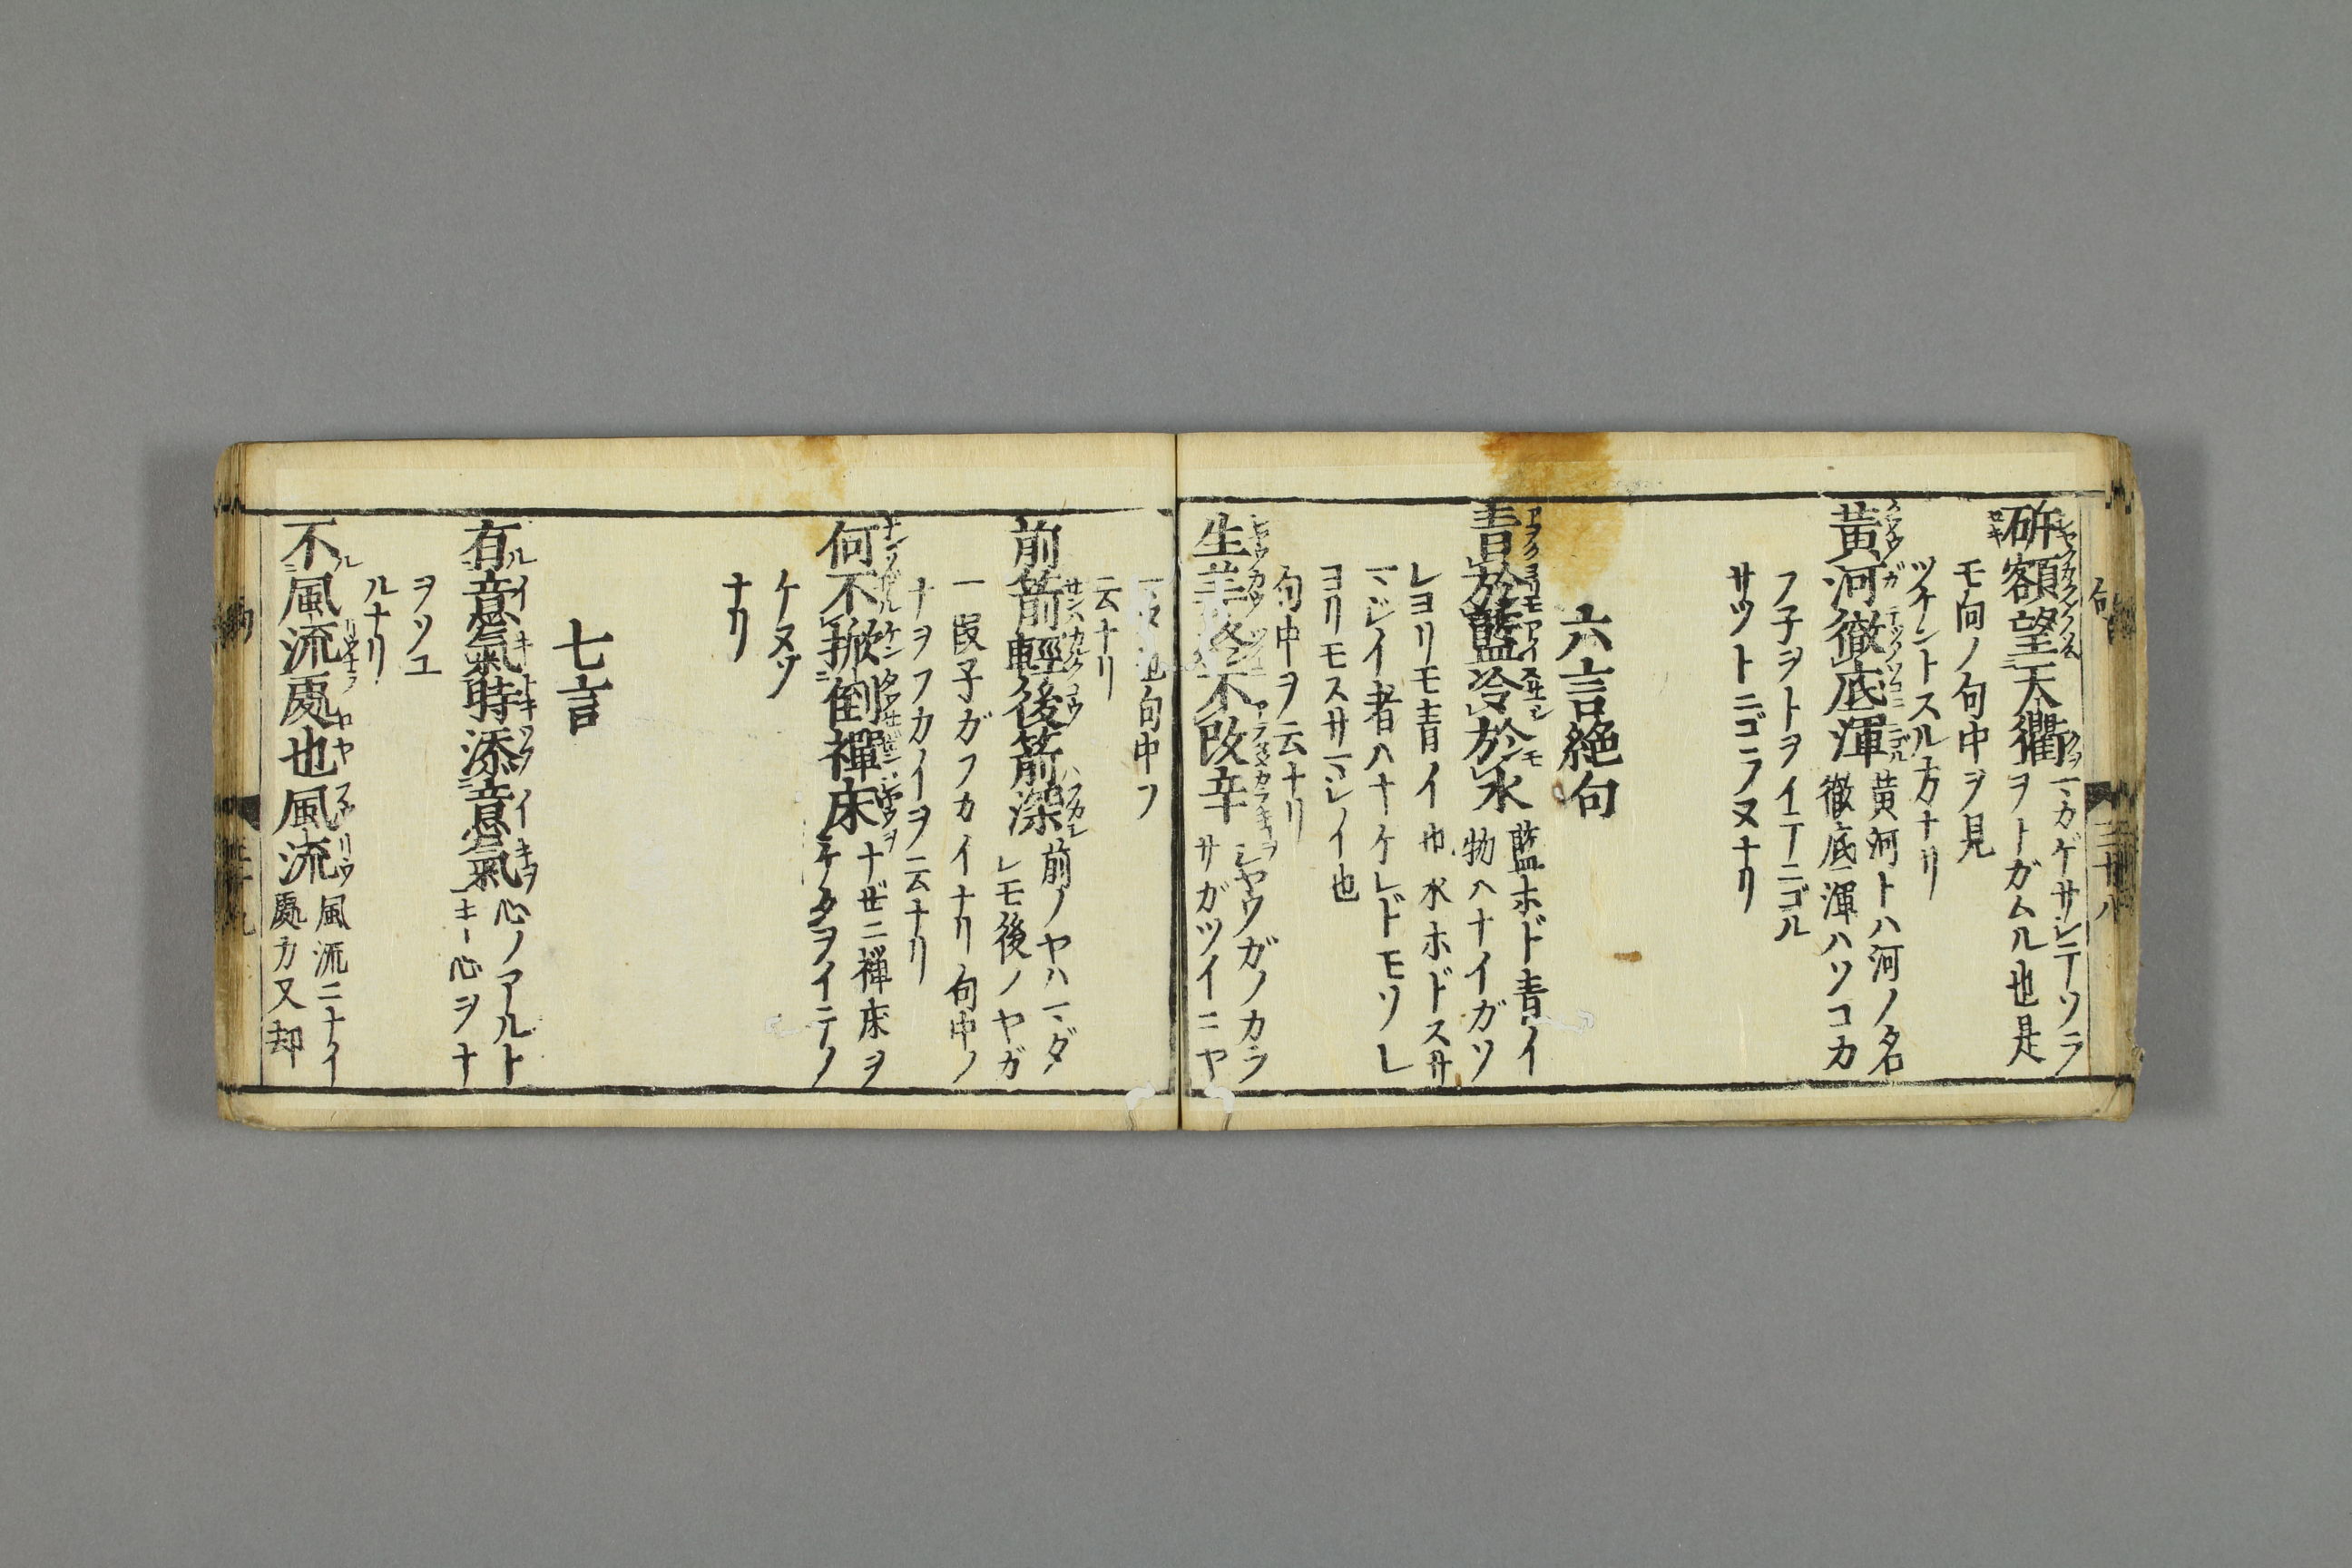 斫額望天衢 マカゲサシテソラ
ヲトガムル也是
モ向ノ句中ヲ見
ツケントスル方ナリ
黄河徹底渾 黄河トハ河ノ名
徹底渾ハソコカ
フ子ヲトヲイテニゴル
サツトニゴラヌナリ
六言絶句
青於藍冷於氷 藍ホド青イ
物ハナイガソ
レヨリモ青イ也氷ホドスサ
マジイ者ハナケレドモソレ
ヨリモスサマシイ也
句中ヲ云ナリ
生姜終不改辛 シヤウガノカラ
サガツイニヤ
句中フ
云ナリ
前箭輕後箭深 前ノヤハマダ
レモ後ノヤガ
一段子ガフカイナリ句中ノ
ナヲフカイヲ云ナリ
何不掀倒禪床 ナゼニ禅床ヲ
ケタヲイテノ
ケヌゾ
ナリ
七言
有意氣時添意氣 心ノアルト
キー心ヲナ
ヲツユ
ルナリ
不風流處也風流 風流ニナイ
處カ又却
句
三十八